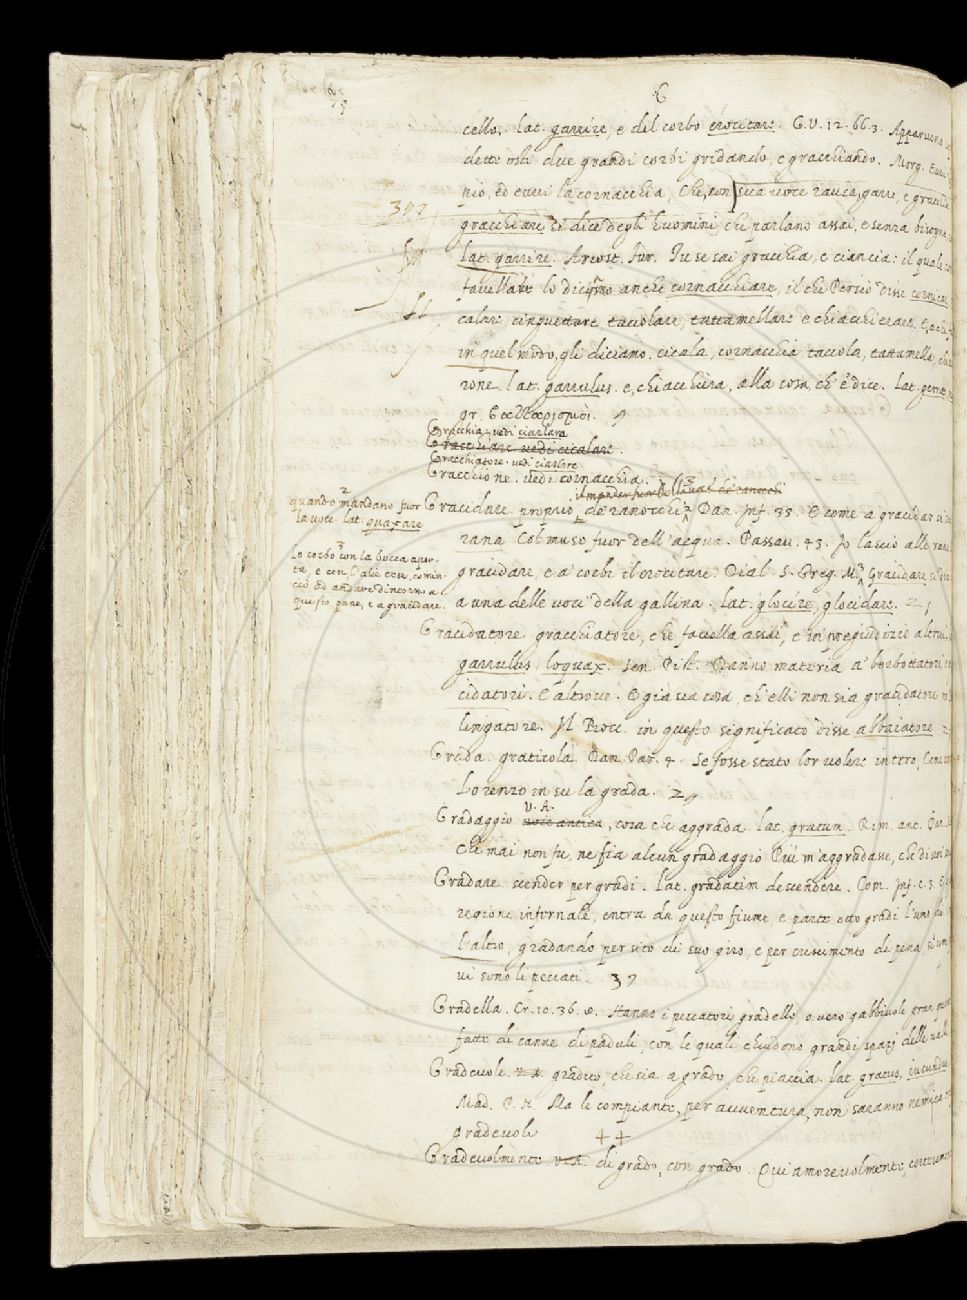 G
cello. lat. garrire, e del corbo crocitare. G.V. 12. 66. 3. Apparirono
detto oste due grandi corbi gridando, e gracchiando. Morg.
pio, ed evvi la cornacchia, Che, con sua voce rauca, garre, e gracchia
gracchiare si dice degli huomini, che parlano assai, e senza bisogno
397
lat. garrire. Ariost. Fur. Tu se sai gracchia, e ciancia: il quale
favellare lo diciamo anche cornacchiare, il che Persio disse cornicari
calare, cinguettare, taccolare, tattamellare e chiacchierare. E, a chi
in quel modo, gli diciamo. cicala, cornacchia taccola, tattamella, chiac
rone. lat. garrulus. e, chiacchiera, alla cosa, ch'è dice. lat.
gr.
Gracchia. vedi ciarlare
Gracchiare vedi cicalare.
Gracchiatore. vedi ciarliere.
Gracchione. vedi cornacchia.
il mandar fuor della voce de' ranocchi
Gracidare proprio de' ranocchi Dan. Inf. 33. E come a gracidar si sta
quando mandano fuor
la voce. lat. quaxare
rana Col muso fuor dell'acqua. Passav. 43. Io lascio alle rane
lo corbo con la bocca aper-
ta, e con l'alie tese, comin-
ciò ad andare dintorno a
questo pane, e a gracidare.
gracidare, e a' corbi il crocitare. Dial. S. Greg. M. Gracidare, si dice
a una delle voci della gallina. lat. glocire, glocidare.
Gracidatore. gracchiatore, che favella assai, e in pregiudizio altrui.
garrulus, loquax. Sen. Pist. Danno materia a' borbottatori, e
cidatori. E altrove. E già sia cosa, ch'elli non sia gracidatore, ne
lingatore. Il Bocc. in questo significato disse abbaiatore
Grada. graticola. Dan. Par. 4. Se fosse stato lor volere intero, Come
Lorenzo in su la grada.
V. A.
Gradaggio voce antica, cosa che aggrada lat. gratum. Rim. ant.
Che mai non fu, ne fia alcun gradaggio Più m'aggradasse, che di
Gradare scender per gradi. lat. gradatim descendere. Com. Inf. c. 3.
regione infernale, entra da questo fiume, e parte otto gradi l'uno da
l'altro, gradando per sito di suo giro, e per crescimento di pena,
vi sono li peccati.
Gradella. Cr. 10. 36. Hanno i pescatori gradelle, o vero gabbiuole
fatte di canne di paduli, con le quali chiudono grandi spazj delle valli
Gradevole. V. A. gradito, che sia a grado, che piaccia. lat. gratus, iucundus
Mad. P. N. Ma le compiante, per avventura, non saranno
gradevoli ++
Gradevolmente V. A. di grado, con grado. Qui amorevolmente, cortesemente